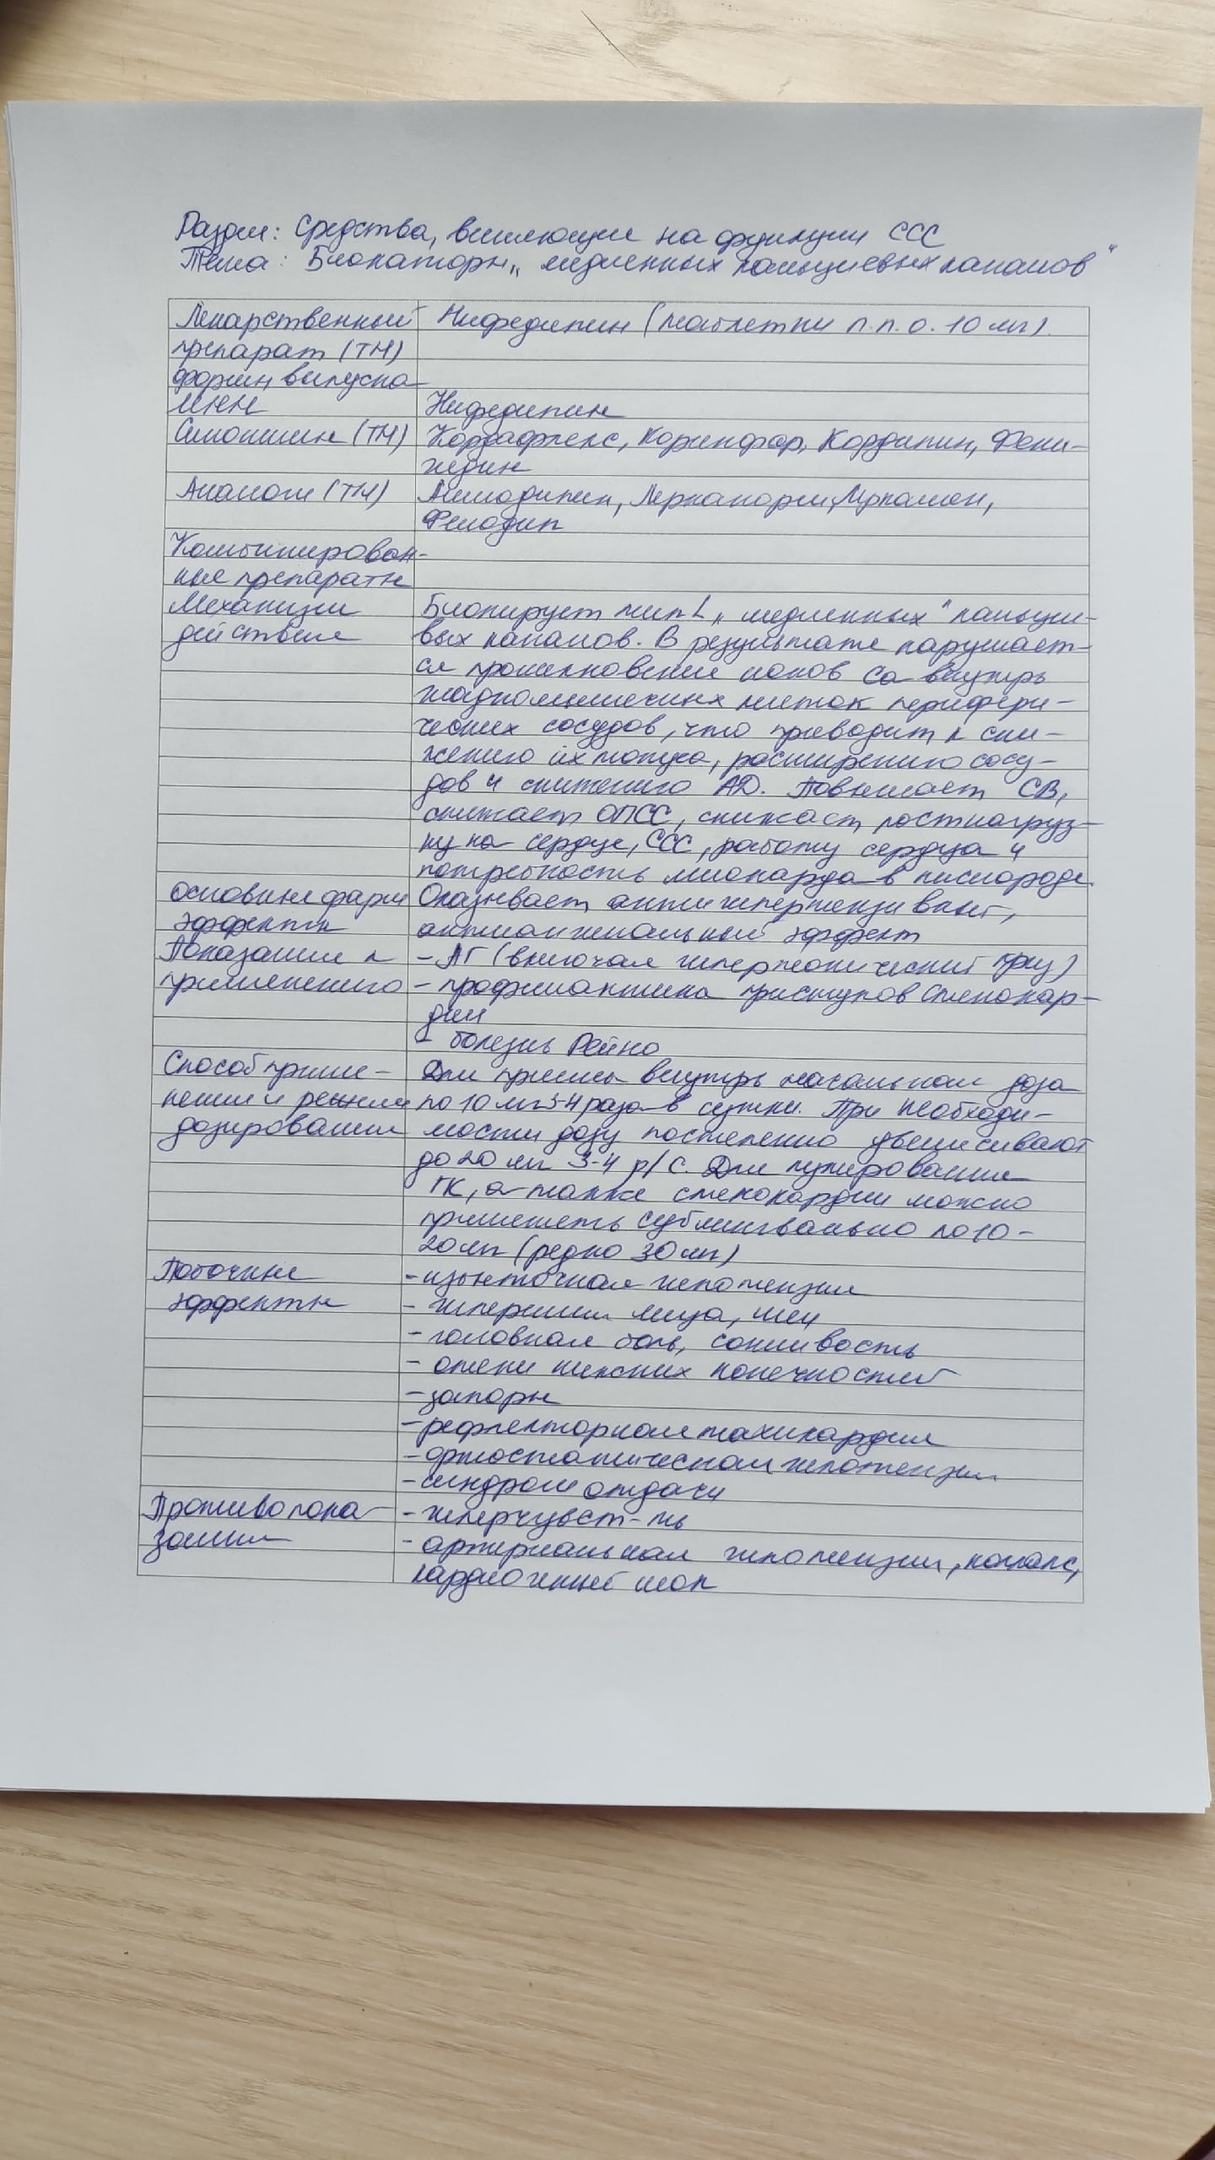 Раздел: Средства, влияющие на функции ССС
Тема: Блокаторы „медленных кальциевых каналов"
Лекарственный препарат (ТН) формы выпуска
Нифедипин (таблетки п.п.о. 10 мг).
МНН
Нифедипин
Синонимы (ТН)
Кордафлекс, Коринфар, Кордипин, Фени-
жидин
Аналоги (ТН)
Амлодипин, Леркамен,
Фелодип
Комбинирован-
ные препараты
Механизм
действия
Блокирует тип L „медленных" кальцие-
вых каналов. В результате нарушает-
ся проникновение ионов Ca внутрь
гладкомышечных клеток перифери-
ческих сосудов, что приводит к сни-
жению их тонуса, расширению сосу-
дов и снижению АД. Повышает СВ,
снижает ОПСС, снижает постнагруз-
ку на сердце, ССС, работу сердца и
потребность миокарда в кислороде
Основные фарм
эффекты
Оказывает антигипертензивный,
антиангинальный эффект
Показания к
применению
- АГ (включая гипертонический криз)
- профилактика приступов стенокар-
дии
- болезнь Рейно
Способ приме-
нения и режим
дозирования
Для приема внутрь начальная доза
по 10 мг 3-4 раза в сутки. При необходи-
мости дозу постепенно увеличивают
до 20 мг 3-4 р/с. Для купирования
ГК, а также стенокардии можно
применять сублингвально по 10-
20 мг (редко 30 мг)
Побочные
эффекты
- избыточная гипотензия
- гиперемия лица, шеи
- головная боль, сонливость
- отеки нижних конечностей
- запоры
- рефлекторная тахикардия
- ортостатическая гипотензия
- синдром отдачи
Противопока
зания
- гиперчувст-ть
- артериальная гипотензия, коллапс,
кардиогенный шок